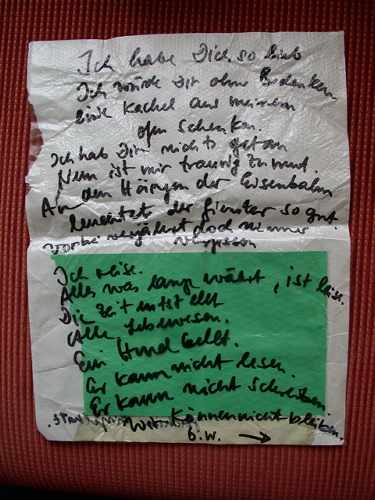 Ich habe Dich so lieb
Ich würde Dir ohne Bedenken
Eine Kachel aus meinem
Ofen schenken.
Ich hab Dir nichts getan
Nun ist mir traurig zu mut.
An den Hängen der Eisenbahn
leuchtet der Ginster so gut.
Vorbei verjährt doch nimmer
vergessen
Ich reise.
Alles was lange währt, ist leise.
Die Zeit entstellt
Alle Lebewesen.
Ein Hund bellt.
Er kann nicht lesen.
Er kann nicht schreiben
können nicht bleiben.
b.w. →